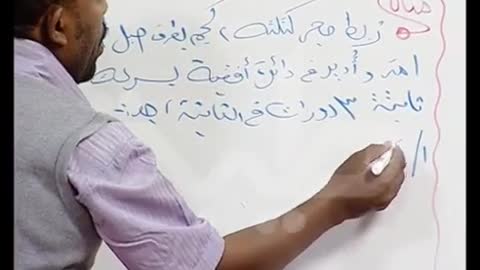 مثال
ربط حجر كتلته ١ كجم بطرف حبل
١ متر وأدير في دائرة أفقية بسرعة
ثابتة ٣ دورات في الثانية أحسب
١/